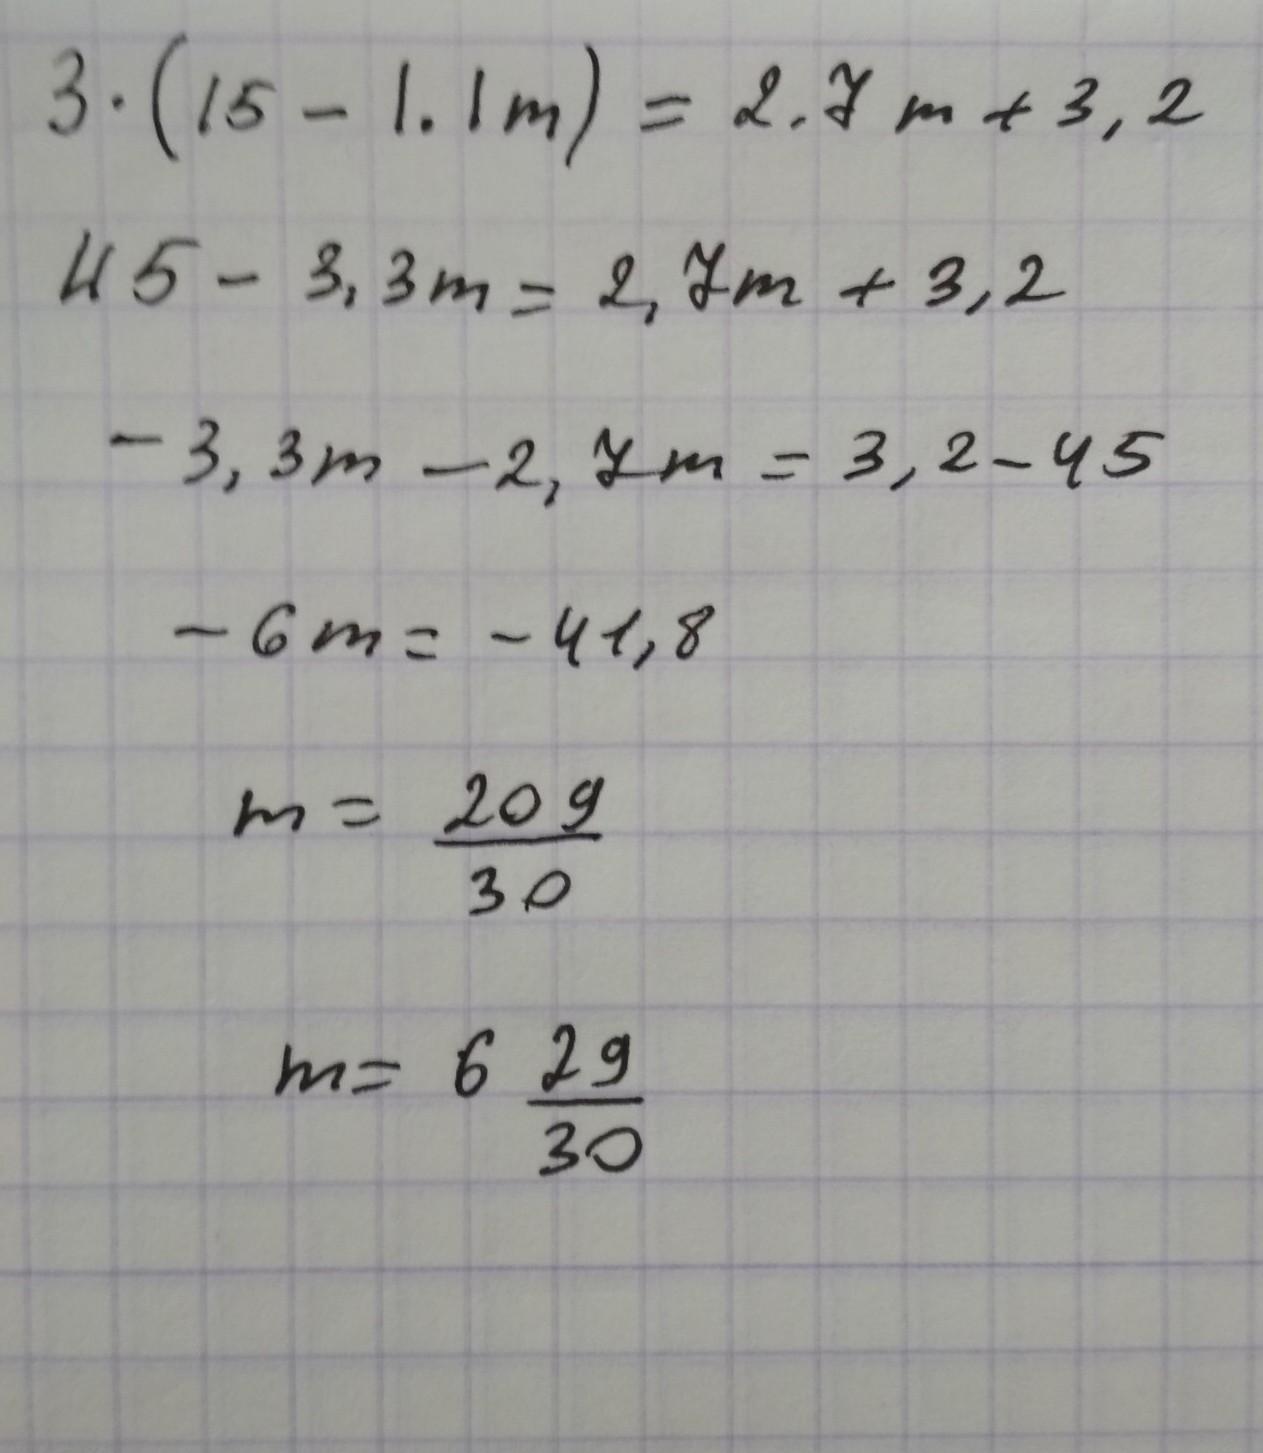 3·(15 - 1.1m) = 2.7m + 3,2
45 - 3,3m = 2,7m + 3,2
-3,3m - 2,7m = 3,2 - 45
-6m = -41,8
m = 209/30
m = 6 29/30